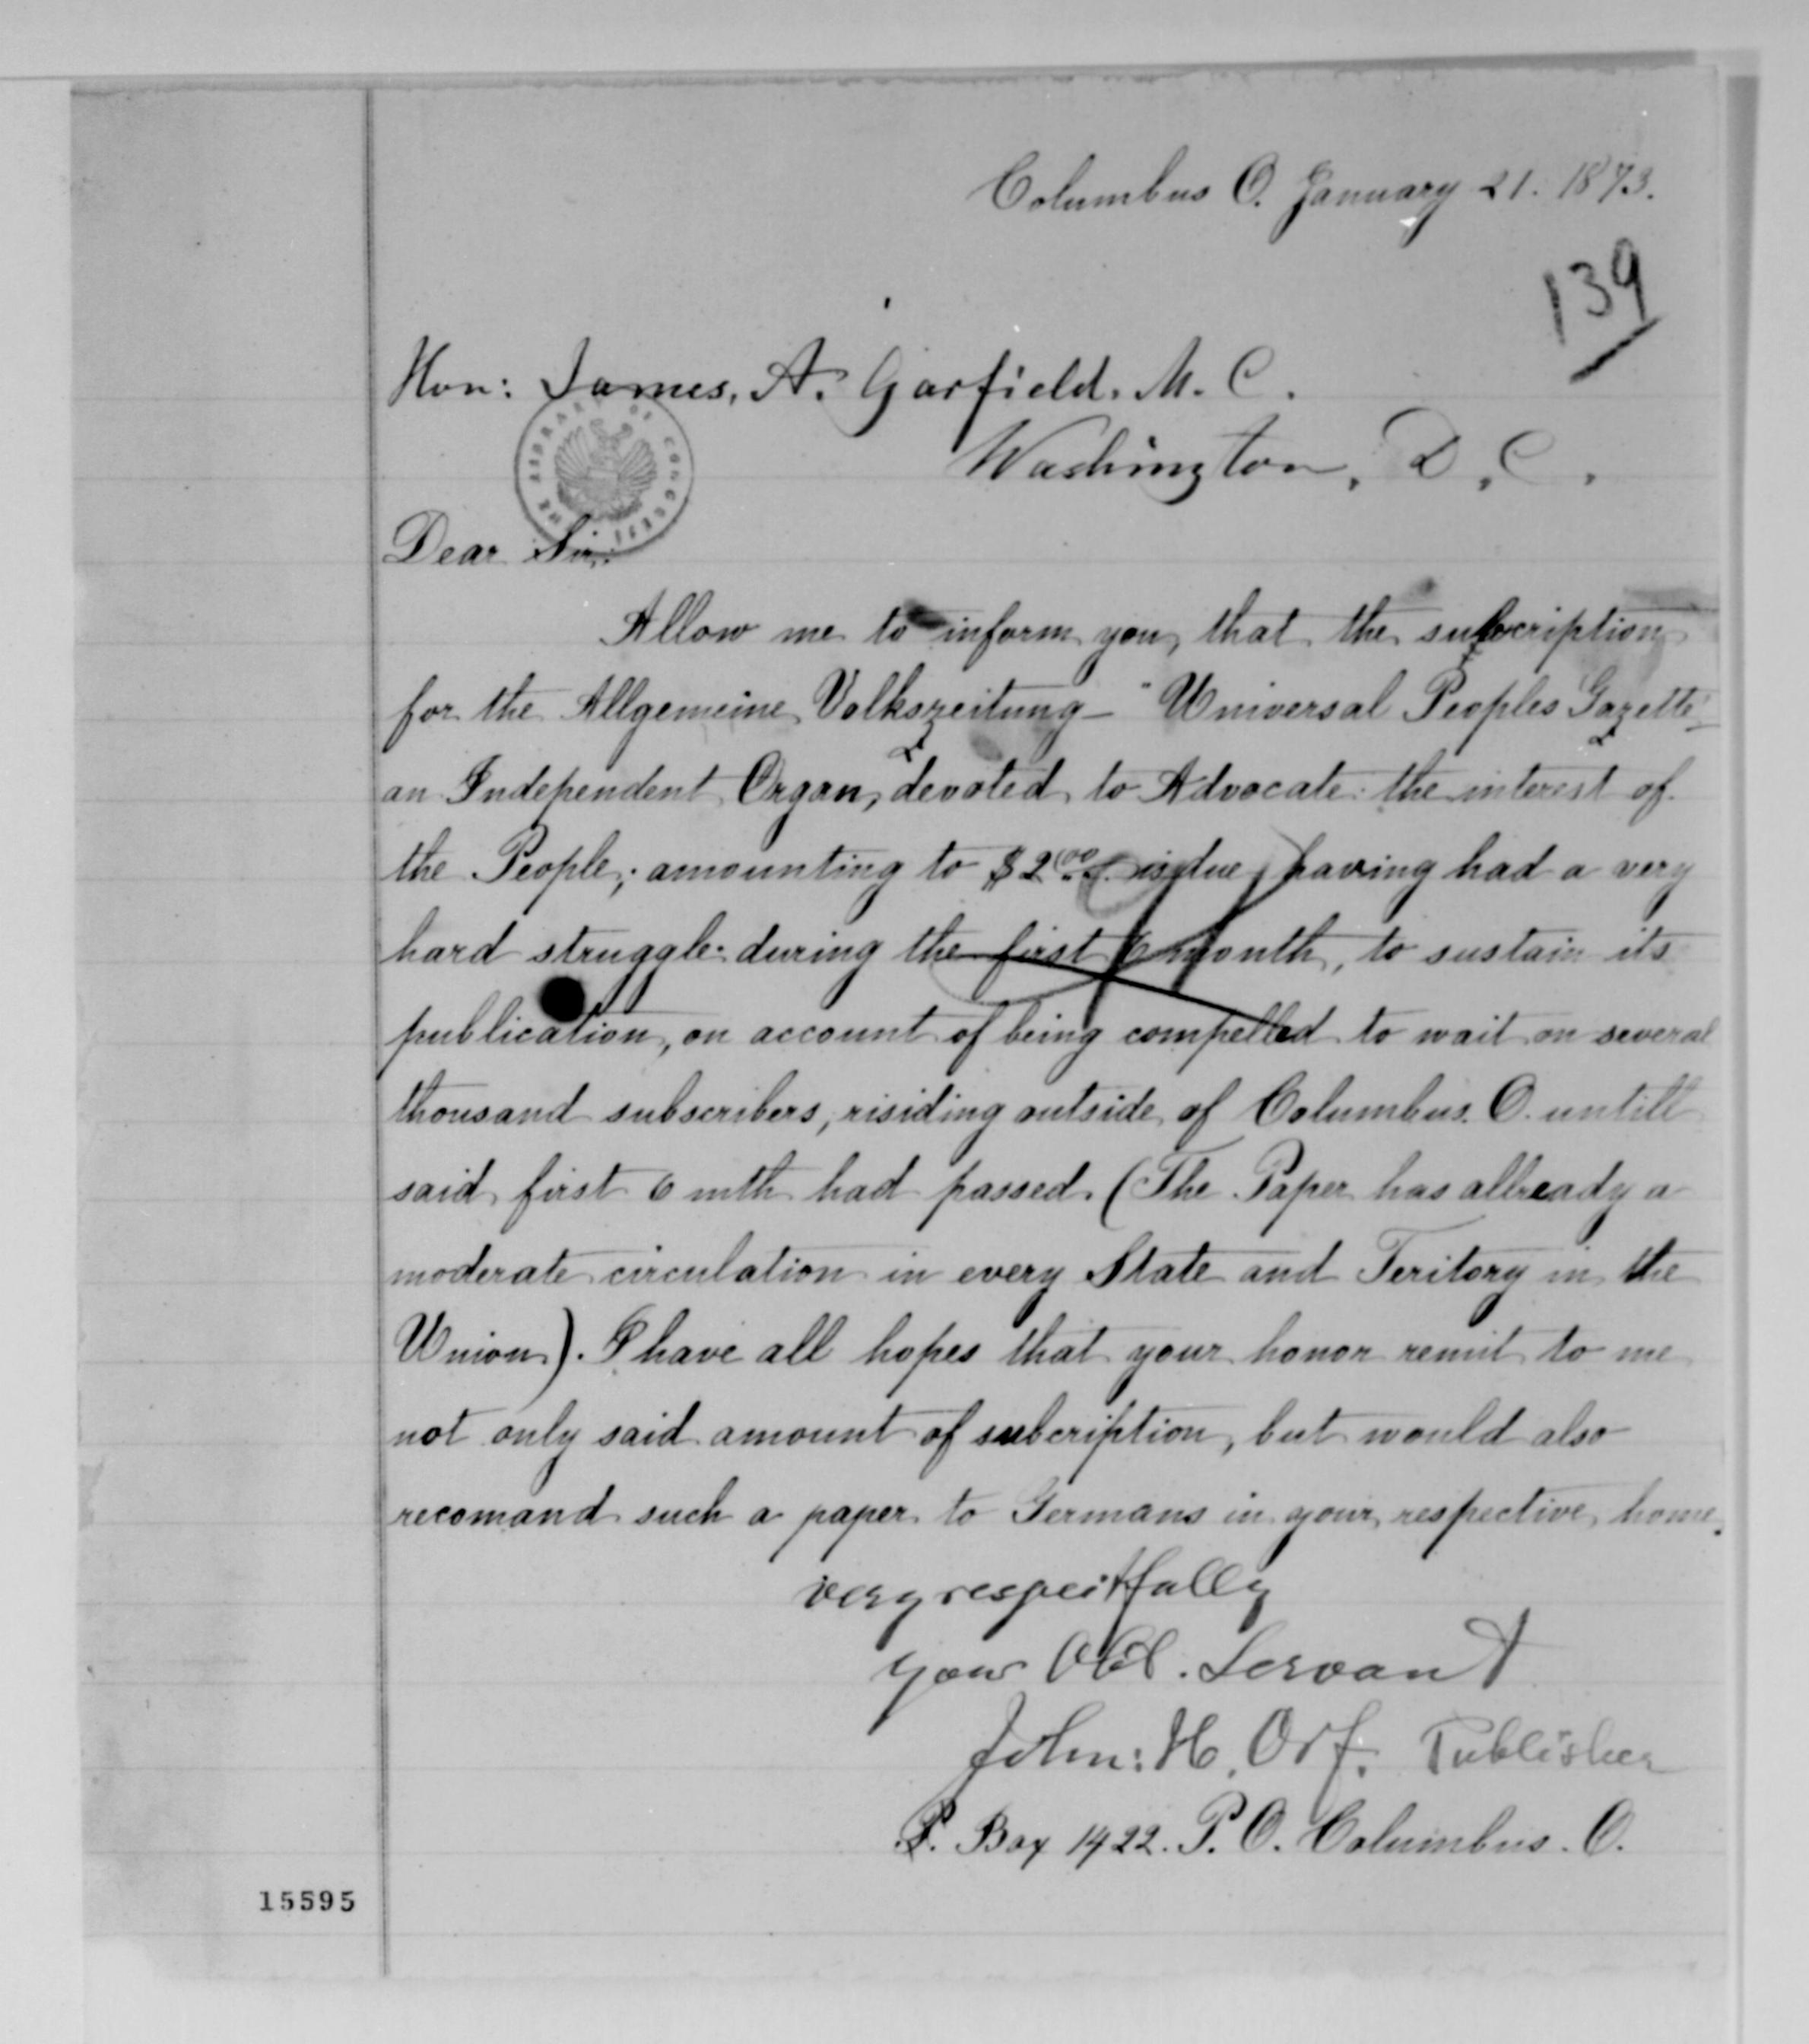 Columbus O. January 21. 1873.
139
Hon: James, A. Garfield. M. C.
Washington, D. C.
THE LIBRARY OF CONGRESS
Dear Sir:
Allow me to inform you, that the subscription
for the Allgemeine Volkszeitung – "Universal Peoples Gazette"
an Independent Organ, devoted to Advocate the interest of
the People; amounting to $2.00 is due, having had a very
hard struggle during the first 6 month, to sustain its
publication, on account of being compelled to wait on several
thousand subscribers, risiding outside of Columbus. O. untill
said first 6 mth had passed. (The Paper has allready a
moderate circulation in every State and Teritory in the
Union). I have all hopes that your honor remit to me
not only said amount of subcription, but would also
recomand such a paper to Germans in your respective home.
very respectfully
your Obd. Servant
John: H. Orf. Publisher
P. Box 1422. P. O. Columbus. O.
15595